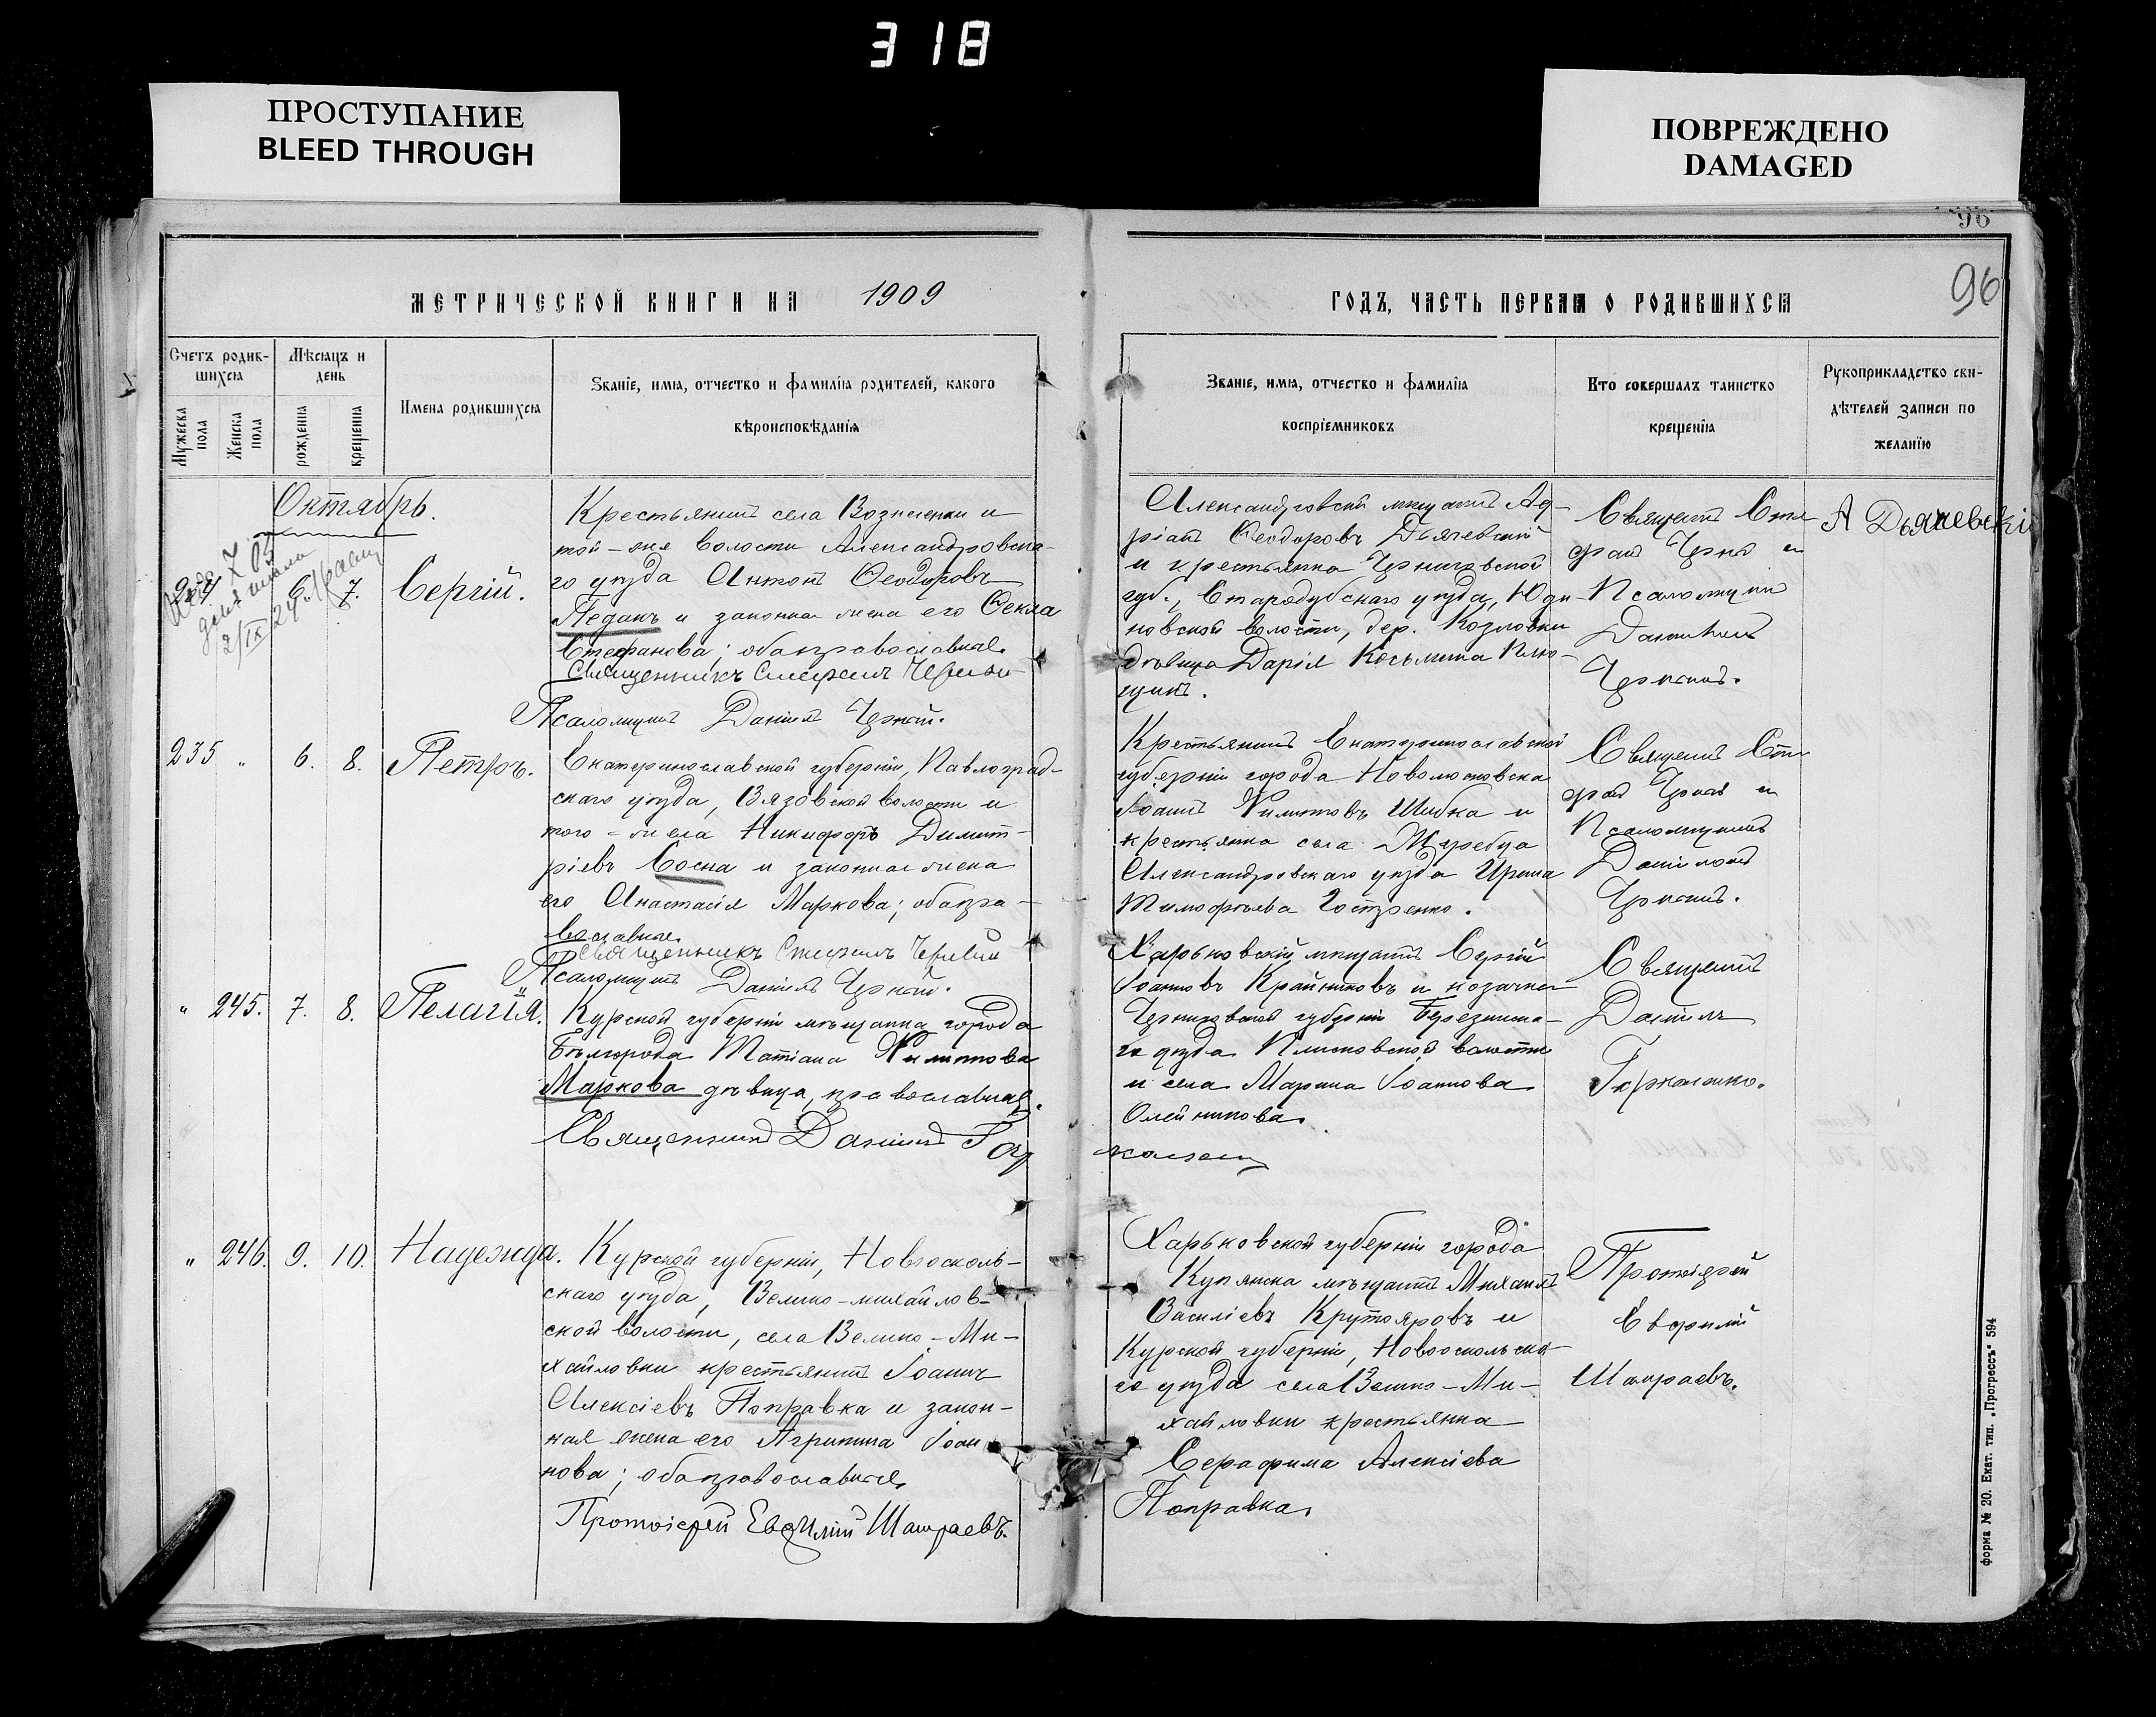 318
ПРОСТУПАНИЕ
BLEED THROUGH
ПОВРЕЖДЕНО
DAMAGED
96
96
МЕТРИЧЕСКОЙ КНИГИ НА 1909
ГОДЪ, ЧАСТЬ ПЕРВАЯ О РОДИВШИХСЯ
Счетъ родив-
шихся
Мужеска пола
Женска пола
Мѣсяцъ и
день
рожденія
крещенія
Имена родившихся
Званіе, имя, отчество и фамилія родителей, какого
вѣроисповѣданія
Званіе, имя, отчество и фамилія
воспріемниковъ
Кто совершалъ таинство
крещенія
Рукоприкладство сви-
дѣтелей записи по
желанію
Октябрь.
6. 7. Сергій.
Крестьянинъ села Вознесенки и
той-же волости Александровска-
го уѣзда Антонъ Ѳеодоровъ
Педанъ и законная жена его Ѳекла
Стефанова; оба православные.
Священникъ Стефанъ Черный
Псаломщикъ Даніилъ Черный.
Александровскій мѣщанинъ Ад-
ріанъ Ѳеодоровъ Дьячевскій
и крестьянка Черниговской
губ., Стародубскаго уѣзда, Юди-
новской волости, дер. Козловки
дѣвица Дарія Косьмина
Священникъ Сте-
фанъ Черный и
Псаломщикъ
Даніилъ
Черный.
А Дьячевскій
235 " 6. 8. Петръ.
Екатеринославской губерніи, Павлоград-
скаго уѣзда, Вязовской волости и
того-же села Никифоръ Димит-
ріевъ Сосна и законная жена
его Анастасія Маркова; оба пра-
вославные.
Священникъ Стефанъ Черный
Псаломщикъ Даніилъ Черный.
Крестьянинъ Екатеринославской
губерніи города Новомосковска
Іоаннъ Филипповъ Шибка и
крестьянка села Жеребца
Александровскаго уѣзда Ирина
Тимофѣева
Священникъ Сте-
фанъ Черный и
Псаломщикъ
Даніилъ
Черный.
" 245. 7. 8. Пелагія.
Курской губерніи мѣщанка города
Бѣлгорода Татіана Филиппова
Маркова дѣвица, православная.
Священникъ Даніилъ Гор
Харьковскій мѣщанинъ Сергій
Іоанновъ Крайниковъ и козачка
Черниговской губерніи Березинска-
го уѣзда волости
и села Марина Іоаннова
Олейникова.
Священникъ
Даніилъ
" 246. 9. 10. Надежда.
Курской губерніи, Новоосколь-
скаго уѣзда, Велико-михайлов-
ской волости, села Велико-Ми-
хайловки крестьянинъ Іоаннъ
Алексіевъ Поправка и закон-
ная жена его Агрипина Іоан-
нова; оба православные.
Протоіерей Евфимій Шашраевъ.
Харьковской губерніи города
Купянска мѣщанинъ Михаилъ
Василіевъ Крутояровъ и
Курской губерніи, Новооскольска-
го уѣзда села Велико-Ми-
хайловки крестьянка
Серафима Алексіева
Поправка.
Протоіерей
Евфимій
Шашраевъ.
форма № 20. Екат. тип. „Прогрессъ“ 594